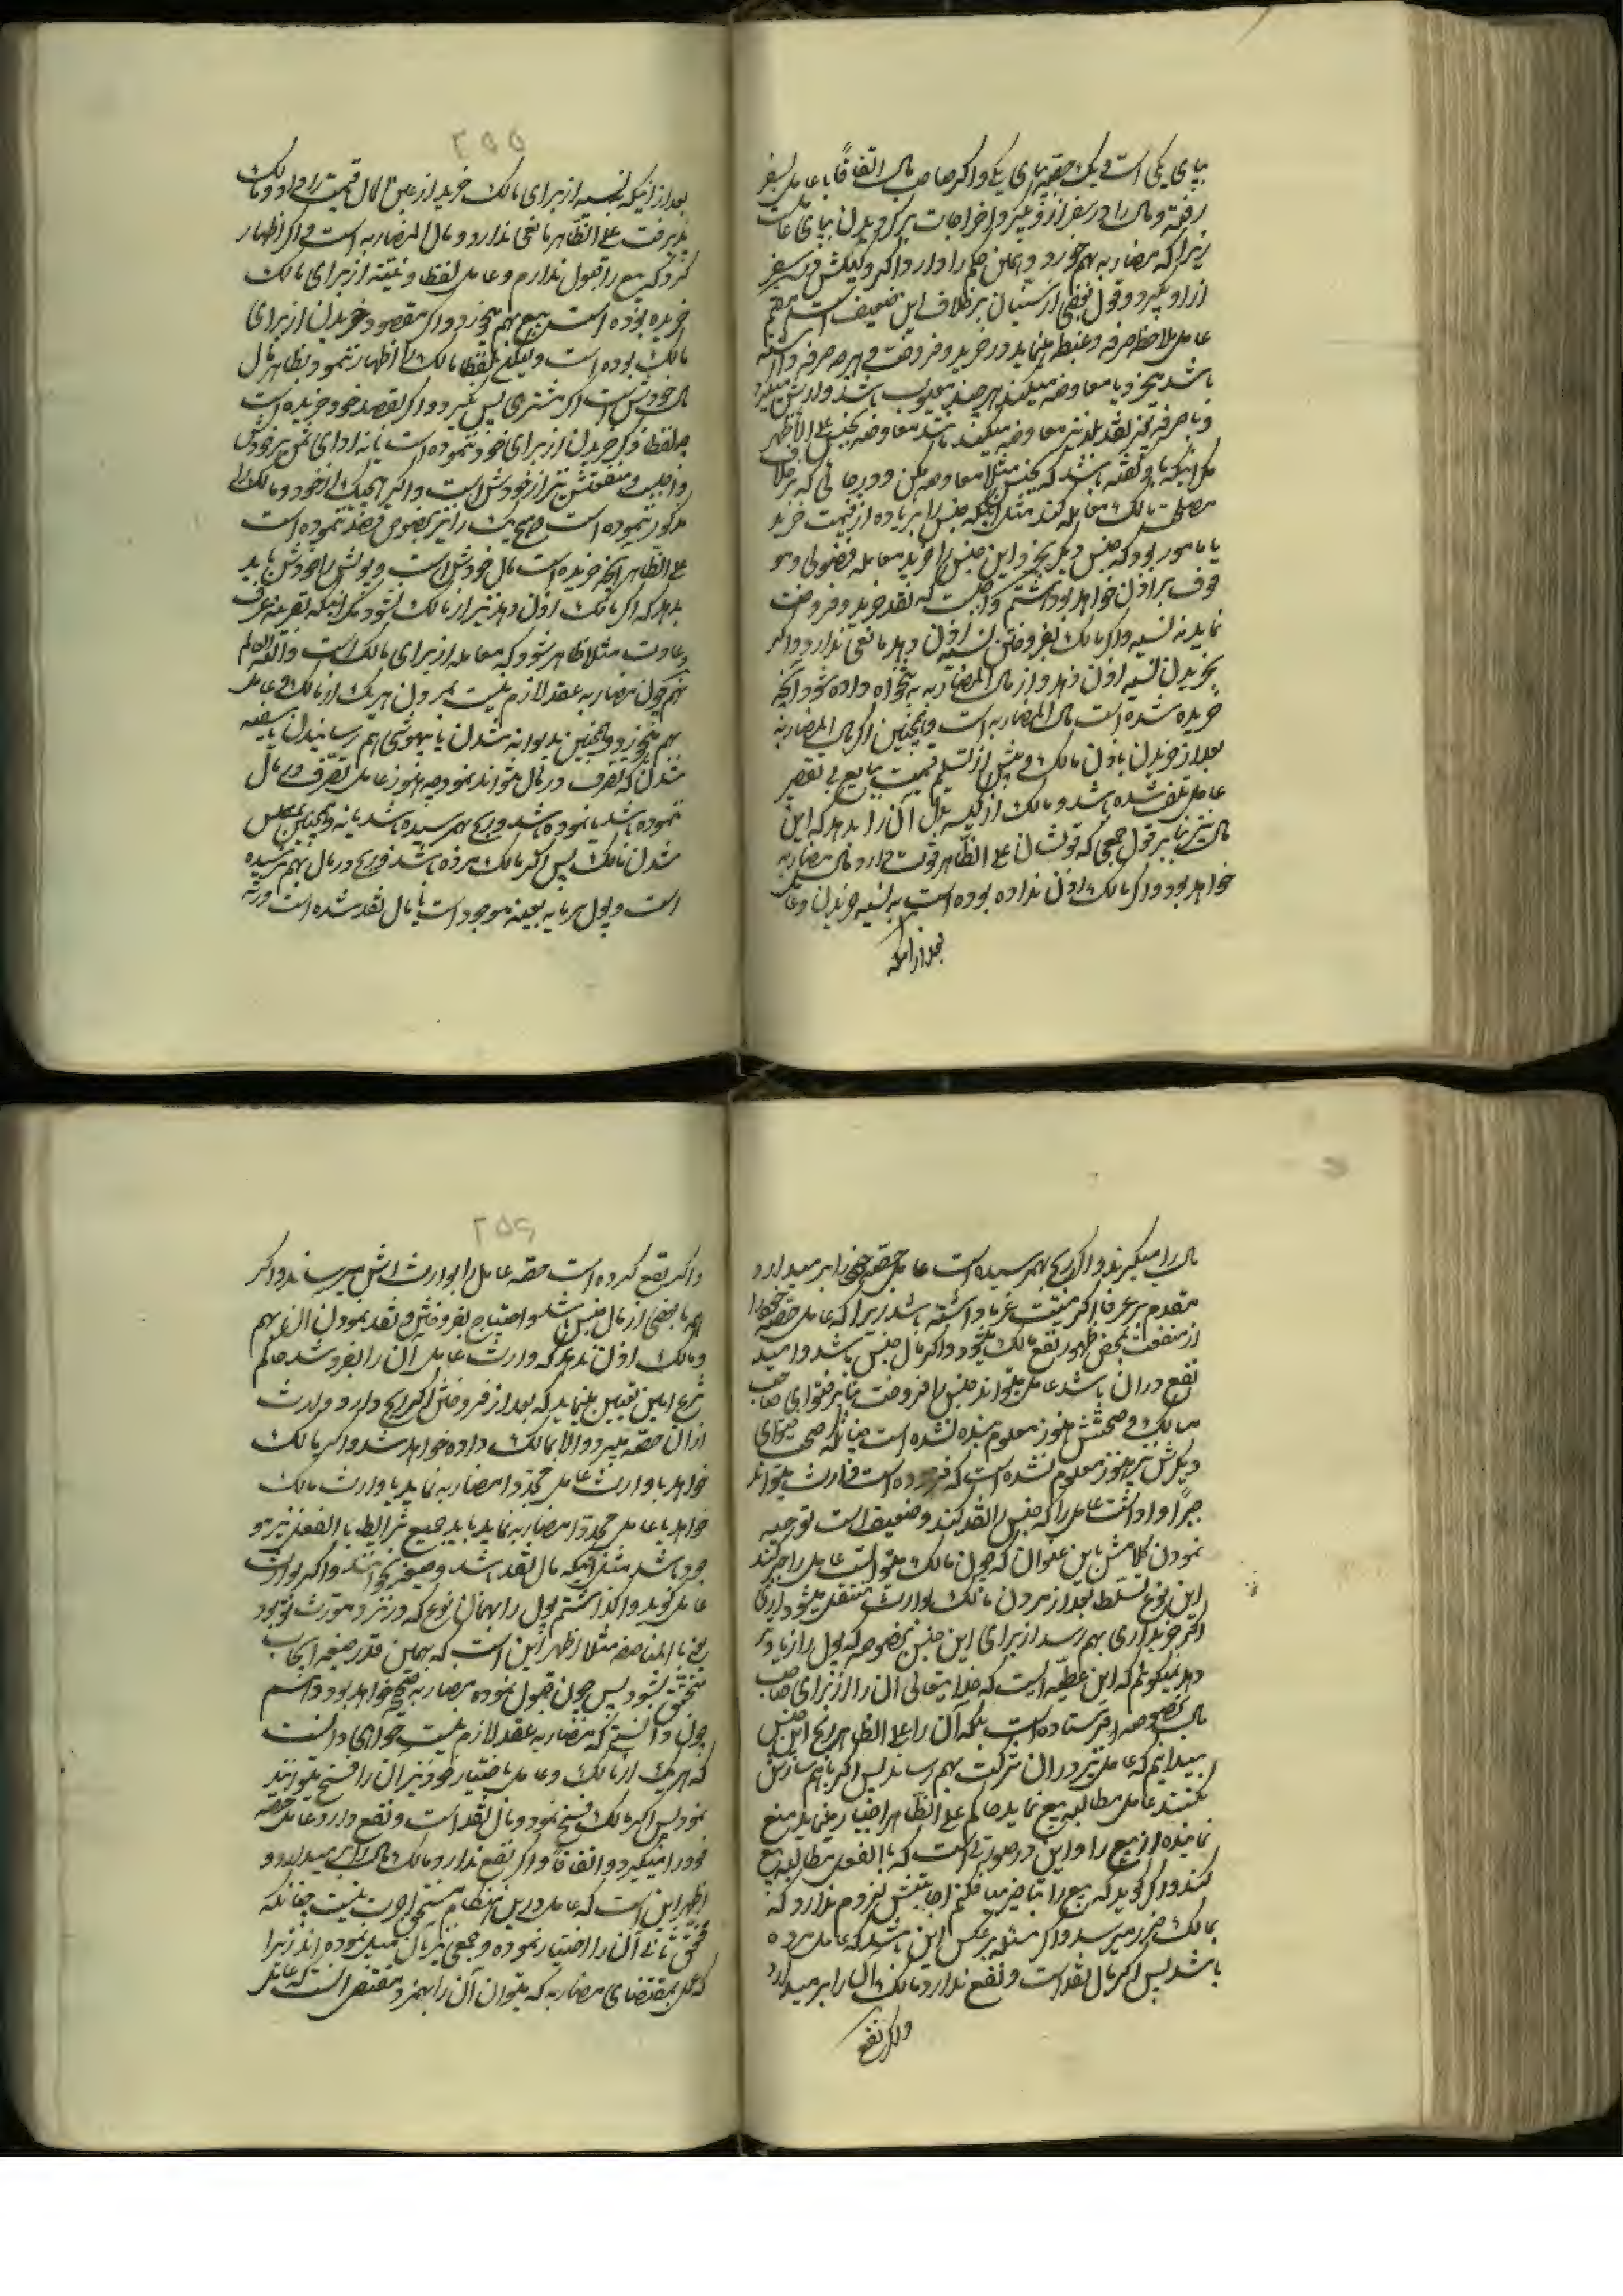 بپای یکی است و یک حصّه بپای یکی و اگر صاحب مال اتفاقًا با عامل بسفر
رفته و مال را در سفر از او بگیرد اخراجات برگردیدن بپای عامل است
زیرا که مضاربه بهم خورد و همین حکم را دارد اگر وکیلش در سفر
از او بگیرد و قول بعضی از سنیان بر خلاف این ضعیف است
عامل ملاحظه صرفه و غبطه مینماید در خرید و فروخت و هر چه صرفه داشته
باشد میخرد یا معاوضه میکند هر چند معیوب باشد و ارش میگیرد
و با صرفه بغیر نقد بلد نیز معاوضه میکند مانند معاوضه بجنس علی الأظهر
مگر اینکه باو گفته باشد که بجنس مثلا معاوضه مکن و در جائی که بر خلاف
مصلحت مالک معامله کند مثل اینکه جنس را بزیاده از قیمت خرید
یا مامور بود که جنس دیگر بخرد و این جنس را خرید معامله فضولی و مو
قوف بر اذن خواهد بود هشتم واجبست که بنقد خرید و فروخت
نماید نه نسیه و اگر مالک بفروختن نسیه اذن دهد مانعی ندارد و اگر
بخریدن نسیه اذن دهد و از مال المضاربه به تنخواه داده شود آنچه
خریده شده است مال المضاربه است و همچنین اگر مال المضاربه
بعد از خریدن باذن مالک و پیش از تسلیم قیمت ببایع بی تقصیر
عامل تلف شده باشد و مالک از کیسه بدل آن را بدهد که این
مال نیز بنا بر قول جمعی که قولشان علی الظاهر قوت دارد مال مضاربه
خواهد بود و اگر مالک اذن نداده بوده است به نسیه خریدن و عامل
بعد از اینکه
۲۵۵
بعد از اینکه نسیه از برای مالک خرید از عین المال قیمت را داد و مالک
پذیرفت علی الظاهر مانعی ندارد و مال المضاربه است و اگر اظهار
کرد که بیع را قبول ندارم و عامل لفظا و نیّته از برای مالک
خریده بوده است بیع بهم میخورد و اگر مقصود خریدن از برای
مالک بوده است و لیکن لفظا مالک را اظهار ننمود و بظاهر مال
مال خودش است اگر مشتری پس نمیگیرد و اگر بقصد خود خریده است
چه لفظا ذکر خریدن از برای خود ننموده است یا نه ادای ثمن بر خودش
واجب و منفعتش نیز از خودش است و اگر هیچیک از خود و مالک را
مذکور ننموده است و هیچیک را نیز بخصوص قصد ننموده است
علی الظاهر آنچه خریده است مال خودش است و پولش را خودش باید
بدهد که اگر مالک اذن دهد نیز از مالک نشود مگر اینکه بقرینه عرف
و عادت مثلا ظاهر شود که معامله از برای مالک است و اللّه العالم
نهم چون مضاربه عقد لازم نیست بمردن هر یک از مالک و عامل
بهم میخورد و همچنین بدیوانه شدن یا بیهوشی بهم رسانیدن یا سفیه
شدن که تصرف در مال نتواند نمود چه هنوز عامل تصرّف در مال
ننموده باشد یا نموده باشد و ربح بهم رسیده باشد یا نه و همچنین مفلس
شدن مالک پس اگر مالک مرده باشد و ربح در مال بهم نرسیده
است و پول سرمایه بعینه موجود است یا مال نقد شده است ورثه
مال را میگیرند و اگر ربح بهم رسیده است عامل حصّه خود را بر میدارد
مقدم بر غرما اگر میّت غرما داشته باشد زیرا که عامل حصّه خود را
از منفعت بمحض ظهور نفع مالک میشود و اگر مال جنس باشد و امید
نفع در آن باشد عامل میتواند جنس را فروخت بنا بر فتوای صاحب
مسالک و صحتش هنوز معلوم بنده نشده است چنانکه صحت فتوای
دیگرش نیز هنوز معلوم نشده است که فرموده است وارث میتواند
جبرًا وا داشت عامل را که جنس را نقد کند و ضعیف است توجیه
نمودن کلامش باین عنوان که چون مالک میتوانست عامل را جبر کند
این نوع تسلّط بعد از مردن مالک بوارث منتقل میشود آری
اگر خریداری بهم رسد از برای این جنس بخصوصه که پول را زیادتر
دهد نمیگوئیم که این عطیّه ایست که خدایتعالی آن را از برای صاحب
مال بخصوصه فرستاده است بلکه آن را علی الظاهر ربح این جنس
میدانیم که عامل نیز در آن شرکت بهم رساند پس اگر با هم سازش
نکنند عامل مطالبه بیع نماید حاکم علی الظاهر اجبار مینماید منع
نماینده از بیع را و این در صورتی است که بالفعل مطالبه بیع
کند و اگر گوید که بیع را بتاخیر میافکنم اجابتش لزوم ندارد که
بمالک ضرر میرسد و اگر مسئله بر عکس این باشد که عامل مرده
باشد پس اگر مال نقد است و نفع ندارد مالک آن را بر میدارد
و اگر نفع
۲۵۶
و اگر نفع کرده است حصّه عامل را بوارث اش میرساند و اگر
همه یا بعضی از مال جنس باشد و احتیاج بفروختن و نقد نمودن آن بهم
و مالک اذن ندهد که وارث عامل آن را بفروشد حاکم
شرع امین تعیین مینماید که بعد از فروختن اگر ربح دارد وارث
از آن حصّه میبرد و الا بمالک داده خواهد شد و اگر مالک
خواهد با وارث عامل مجدّدا مضاربه نماید یا وارث مالک
خواهد با عامل مجدّدا مضاربه نماید باید جمیع شرایط بالفعل نیز مو
جود باشد مثل اینکه مال نقد باشد و صیغه بخوانند و اگر بوارث
عامل گوید واگذاشتم پول را بهمان نوع که در نزد مورّث تو بود
یعنی بالمناصفه مثلا اظهر این است که بهمین قدر صیغه ایجاب
متحقق نشود پس چون قبول نموده مضاربه صحیح خواهد بود دهم
چون دانستی که مضاربه عقد لازم نیست خواهی دانست
که هر یک از مالک و عامل باختیار خود نیز آن را فسخ میتوانند
نمود پس اگر مالک فسخ نمود و مال نقد است و نفع دارد عامل حصّه
خود را میگیرد و اتفاقًا و اگر نفع ندارد مالک مال را بر میدارد و
اظهر این است که عامل در این هنگام مستحق اجرت نیست چنانکه
محقق ثانی آن را اختیار نموده و جمعی نیز بآن میل نموده اند زیرا
که عمل بمقتضای مضاربه که میتوان آن را بهم زد مقتضی است که عامل